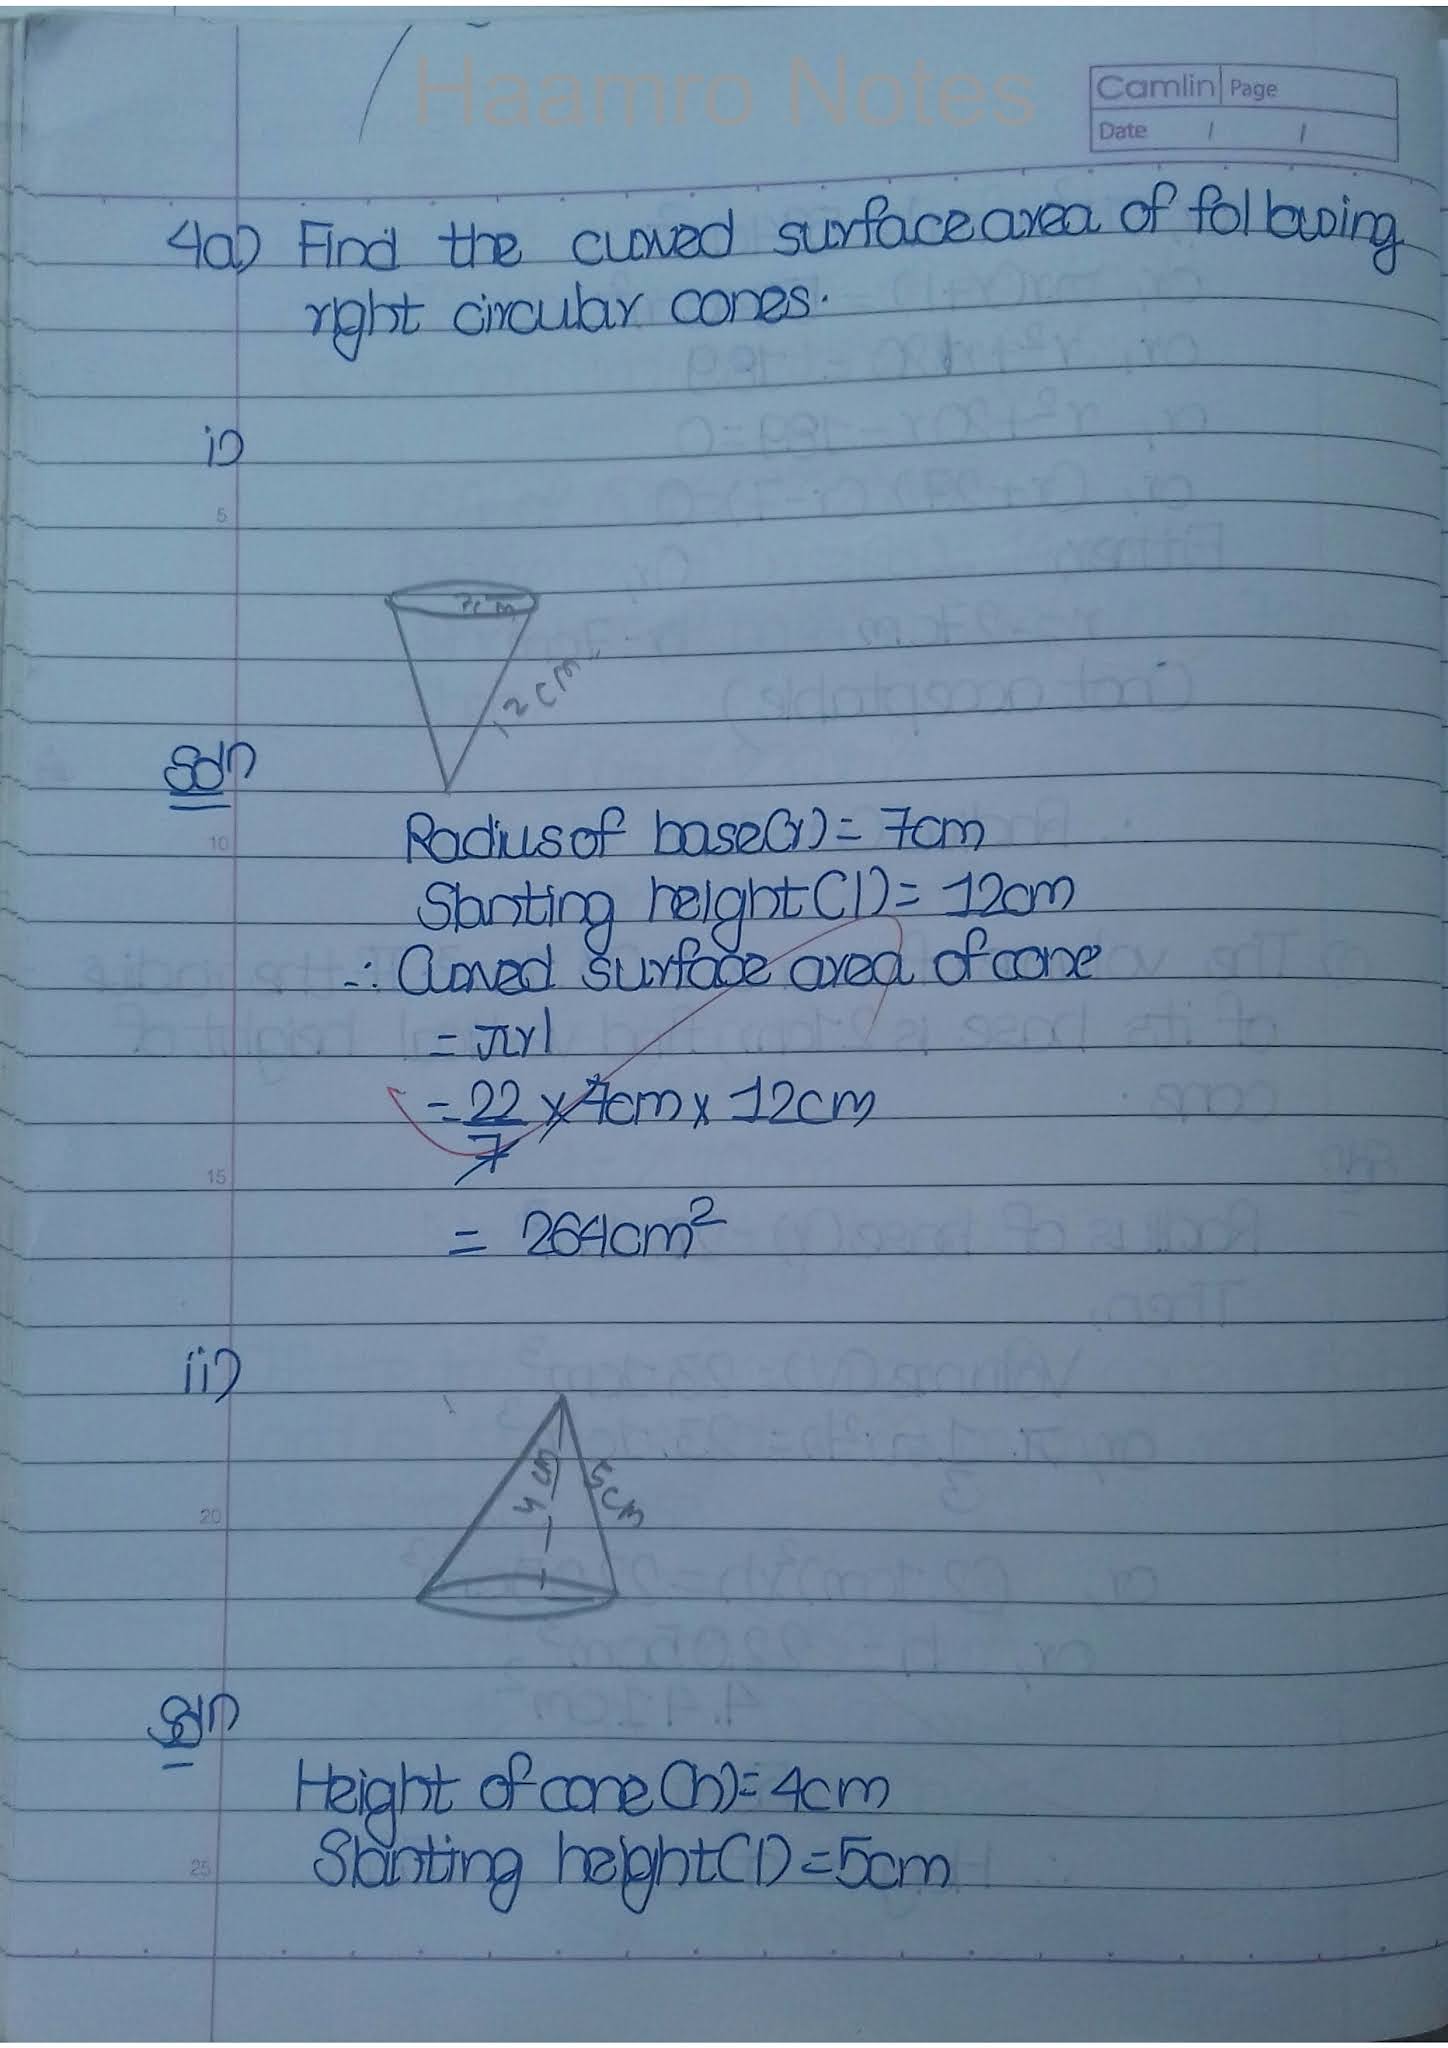 Haamro Notes
Camlin Page
Date / /
4a) Find the curved surface area of following
right circular cones.
i)
5
7cm
12cm
Soln
10
Radius of base(r) = 7cm
Slanting height(l) = 12cm
∴ Curved surface area of cone
= πrl
= 22/7 × 7cm × 12cm
15
= 264cm²
ii)
4cm
5cm
20
Soln
Height of cone(h) = 4cm
Slanting height(l) = 5cm
25